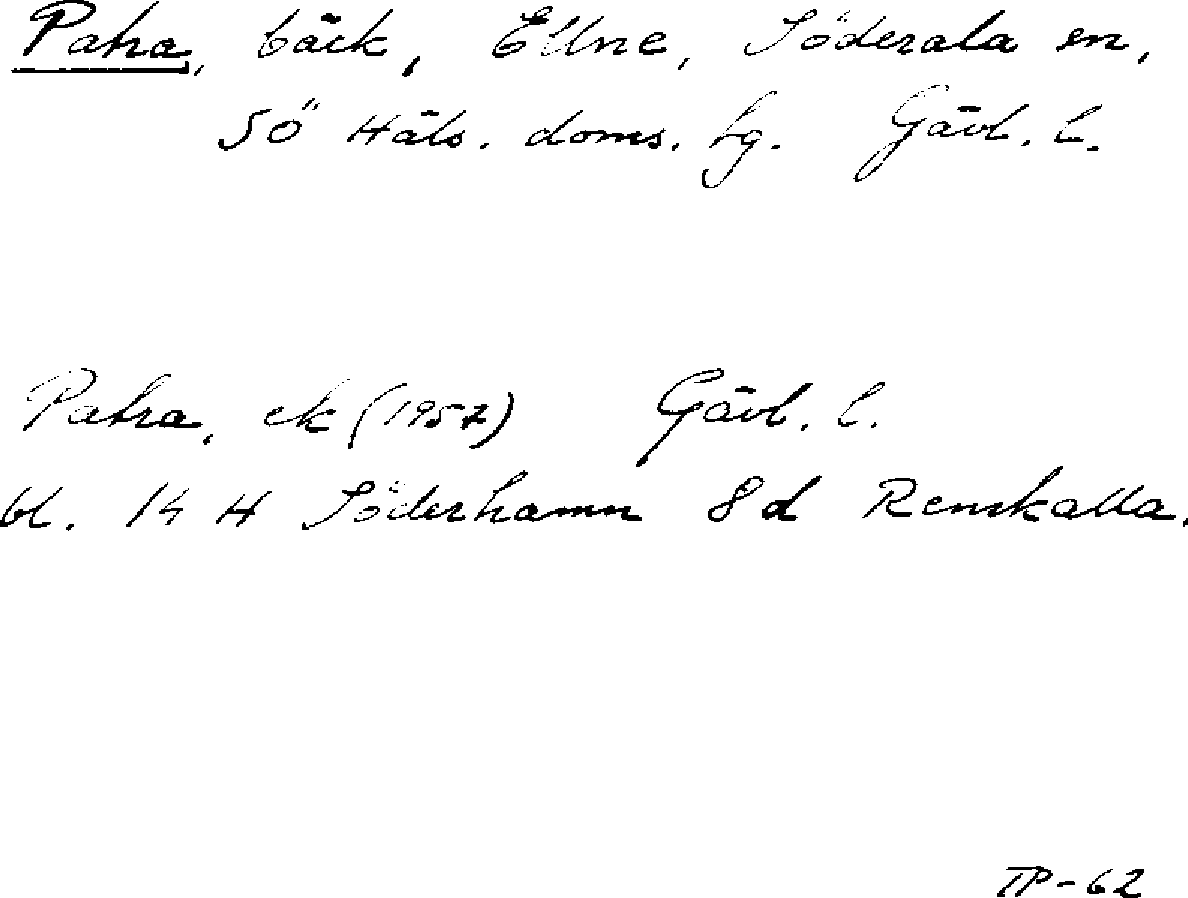 Patra, bäck, Ellne, Söderala sn,
SÖ Häls. doms. hg. Gävl. l.
Patra, ek (1957) Gävl. l.
bl. 14 H Söderhamn 8d Renskalla.
TP-62